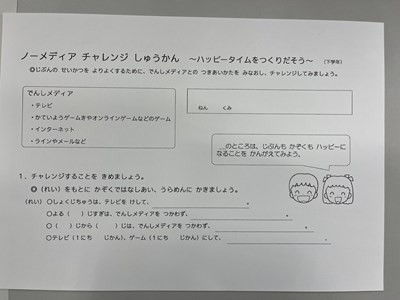 ノーメディア チャレンジ しゅうかん ～ハッピータイムをつくりだそう～ (下学年)
◎じぶんの せいかつを よりよくするために、でんしメディアとの つきあいかたを みなおし、チャレンジしてみましょう。
でんしメディア
・テレビ
・かていようゲームきやオンラインゲームなどのゲーム
・インターネット
・ラインやメールなど
ねん くみ
のところは、じぶんも かぞくも ハッピーに
なることを かんがえてみよう。
1．チャレンジすることを きめましょう。
◎（れい）をもとに かぞくではなしあい、うらめんに かきましょう。
（れい）〇しょくじちゅうは、テレビを けして、
〇よる （ ）じすぎは、でんしメディアを つかわず、
〇（ ）じから（ ）じは、でんしメディアを つかわず、
〇テレビ（1にち じかん）、ゲーム（1にち じかん）にして、